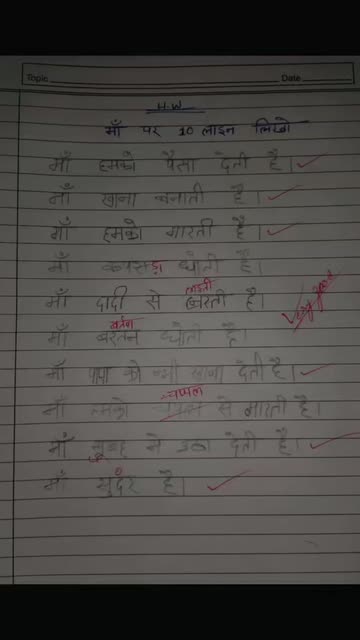 Topic Date
H.W
माँ पर 10 लाइन लिखो
माँ हमको पैसा देती है।
माँ खाना बनाती है।
माँ हमको मारती है।
माँ कपड़ा धोती है।
लड़ती
माँ दादी से है।
Very good
बर्तन
माँ बरतन धोती है।
माँ पापा को भी खाना देती है।
चप्पल
माँ हमको से मारती है।
माँ सुबह में उठा देती है।
माँ सुंदर है।